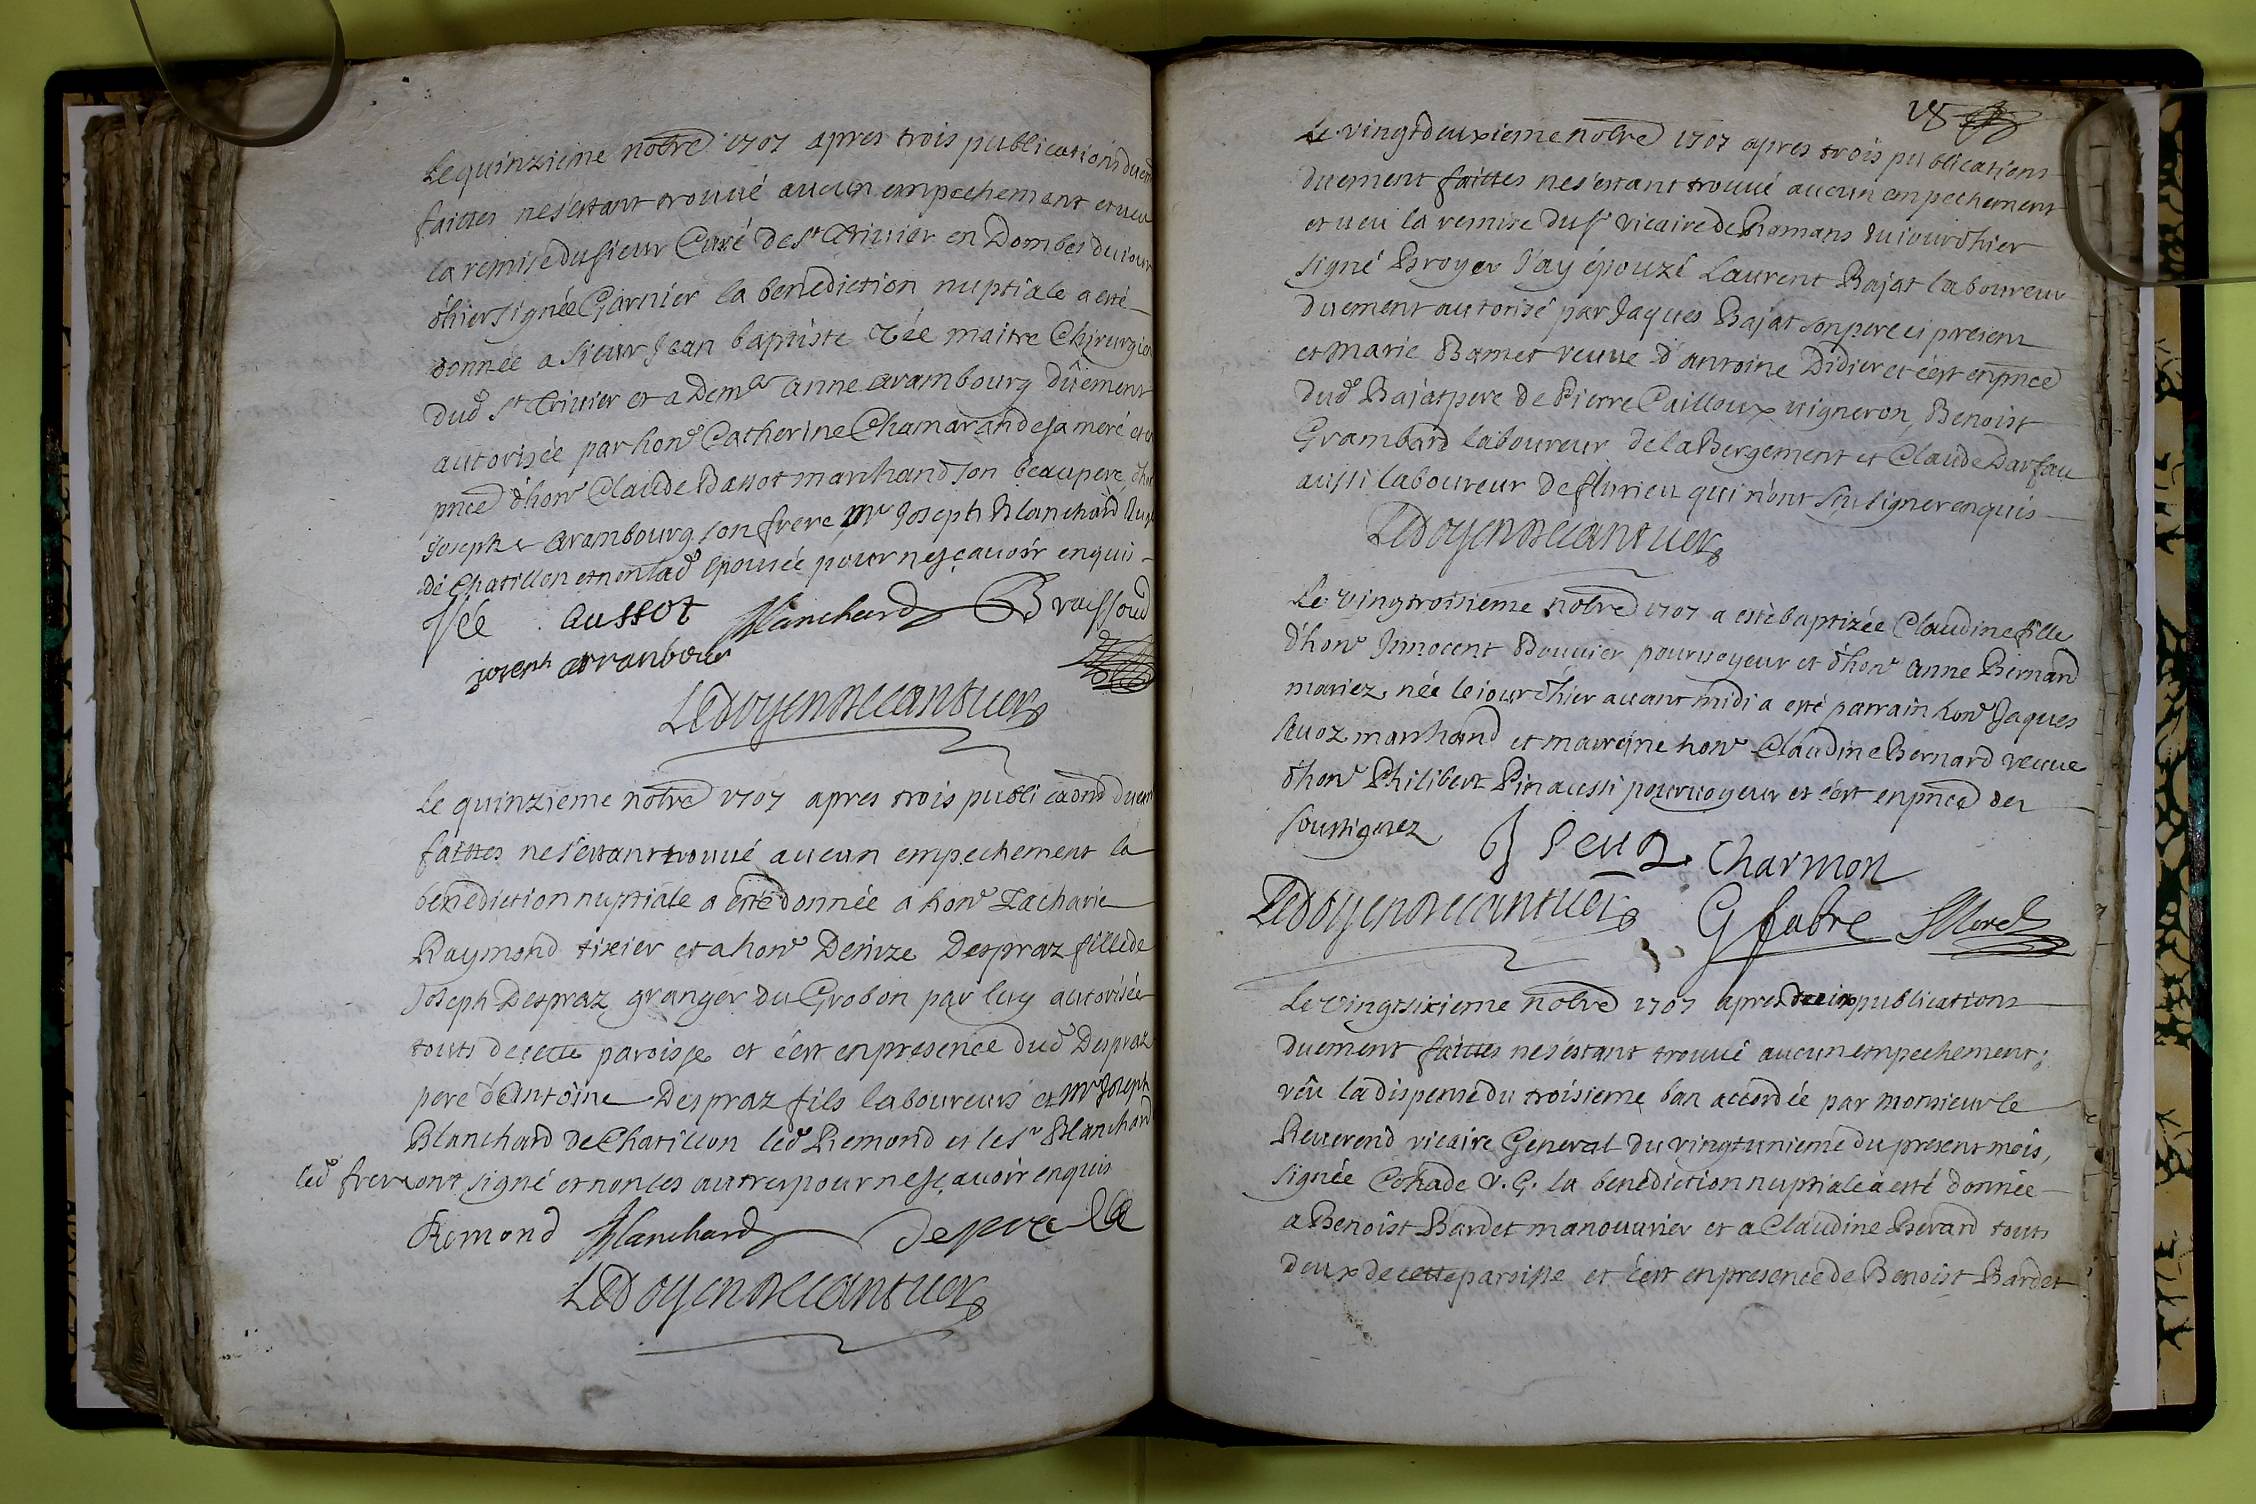 Le quinzieme nobre 1707 apres trois publications duem
faittes ne s'estant trouué aucun empechement et ueu
la remise du sieur Curé de St Triuier en Dombes du iour
d'hier signée Garnier la benediction nuptiale a esté
donnée a sieur Jean baptiste Vée maitre Chirurgien
dud St Triuier et a Demlle anne arambourg dûement
autorisée par hone Catherine Chamarande sa mere et en
pnce d'hone Claude Dassot marchand son beaupere, d'hon
Joseph arambourg son frere Mre Joseph Blanchard
de Chatillon et non lad épousée pour ne sçauoir enquis
Vée aussot Blanchard Braissoud
joseph arranbour
Ledoyen Decantuer
Le quinzieme nobre 1707 apres trois publicaons duem
faittes ne s'estant trouué aucun empechement la
benediction nuptiale a esté donnée a hone Zacharie
Raymond tixier et a hone Denize Despraz fille de
Joseph Despraz granger du Grobon par luy autorisée
touts de cette paroisse et c'est en presence dud Despraz
pere d'Antoine Despraz fils laboureurs et Mre Joseph
Blanchard de Chatillon led Remond et le sr Blanchard
led frere ont signé et non les autres pour ne sçauoir enquis
Remond Blanchard
Ledoyen Decantuer
28
Le vingtdeuxieme nobre 1707 apres trois publications
duement faittes ne s'estant trouué aucun empechement
et ueu la remise du sr vicaire de Romans du iour d'hier
signé Broyer J'ay épouzé Laurent Bajat laboureur
duement autorisé par Jaques Bajat son pere ci present
et Marie Bamet veuue d'antoine Didier et c'est en pnce
dud Bajat pere de Pierre Cailloux uigneron, Benoist
Grambard laboureur de la Bergement et Claude Darfau
aussi laboureur de flurieu qui n'ont sçu signer enquis
Ledoyen Decantuer
Le vingtroisieme nobre 1707 a esté baptizée Claudine fille
d'hone Innocent Bouuier pouruoyeur et d'hone Anne Bernard
mariez née le iour d'hier auant midi a esté parrain hone Jaques
Auoz marchand et marreine hone Claudine Bernard veuue
d'hone Philibert Pin aussi pouruoyeur et c'est en pnce des
soussignez
Charmon
Ledoyen Decantuer G fabre Morel
Le vingtsixieme nobre 1707 apres deux publications
duement faittes ne s'estant trouué aucun empechement;
vêu la dispense du troisieme ban accordée par monsieur le
Reuerend vicaire General du vingtunieme du present mois,
signée Cohade V. G. la benediction nuptiale a esté donnée
a Benoist Bardet manouurier et a Claudine Berard touts
deux de cette paroisse et c'est en presence de Benoist Bardet